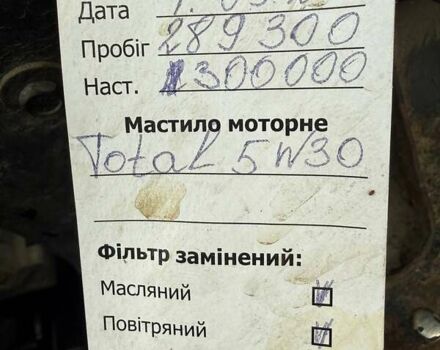 Дата
Пробіг 289300
Наст. 300000
Мастило моторне
Total 5W30
Фільтр замінений:
Масляний
Повітряний